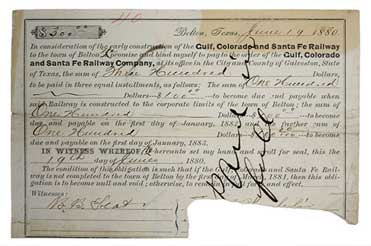 $300.00 Belton, Texas, June 19 1880.
In consideration of the early construction of the Gulf, Colorado and Santa Fe Railway
to the town of Belton, I promise and bind myself to pay to the order of the Gulf, Colorado
and Santa Fe Railway Company, at its office in the City and County of Galveston, State
of Texas, the sum of Three Hundred Dollars,
to be paid in three equal installments, as follows: The sum of One Hundred
Dollars—$100.00—to become due and payable when
said Railway is constructed to the corporate limits of the town of Belton; the sum of
One Hundred
due and payable on the first of January, further sum of
One Hundred to become
due and payable on the first of January, 1883.
IN WITNESS WHEREOF, I hereunto set my hand and scroll for seal, this the
19th day of June 1880.
The condition of this obligation is such that if the Gulf, Colorado and Santa Fe Rail-
way is not completed to the town of Belton by the first 1881, then this obli-
gation is to become null and void; otherwise, to remain in full force and effect.
Witnesses: